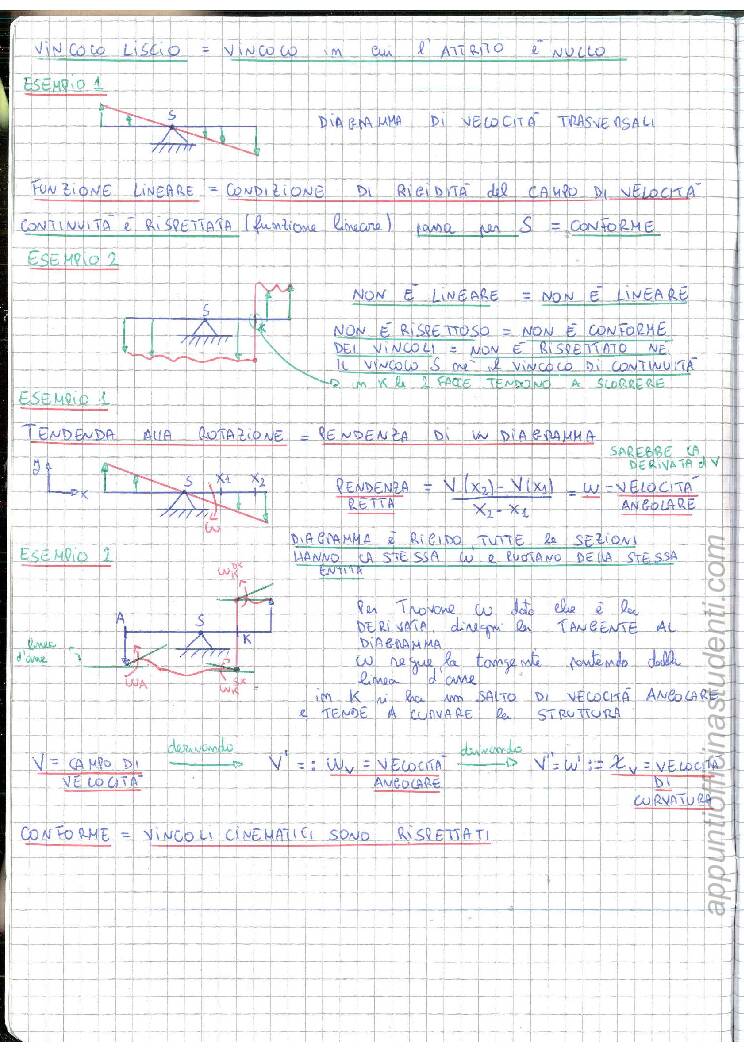 VINCOLO LISCIO = VINCOLO in cui l'ATTRITO è NULLO
ESEMPIO 1
S
DIAGRAMMA DI VELOCITÀ TRASVERSALI
FUNZIONE LINEARE = CONDIZIONE DI RIGIDITÀ del CAMPO DI VELOCITÀ
CONTINUITÀ È RISPETTATA (funzione lineare) passa per S = CONFORME
ESEMPIO 2
S
K
NON È LINEARE = NON È LINEARE
NON È RISPETTOSO = NON È CONFORME
DEI VINCOLI = NON È RISPETTATO NÉ
IL VINCOLO S né il VINCOLO DI CONTINUITÀ
in K le 2 FACCE TENDONO A SCORRERE
ESEMPIO 1
TENDENDA ALLA ROTAZIONE = PENDENZA DI UN DIAGRAMMA
SAREBBE LA
DERIVATA di V
y
x
S
x1
x2
ω
PENDENZA RETTA = V(x2) - V(x1) / x2 - x1 = ω = VELOCITÀ ANGOLARE
DIAGRAMMA È RIGIDO TUTTE le SEZIONI
HANNO LA STESSA ω e RUOTANO DELLA STESSA
ENTITÀ
ESEMPIO 2
ωK dx
A
S
K
linea
d'asse
ωA
ωK sx
Per Trovare ω dato che è la
DERIVATA disegni la TANGENTE AL
DIAGRAMMA
ω segue la tangente partendo dalla
linea d'asse
in K si ha un SALTO DI VELOCITÀ ANGOLARE
e TENDE A CURVARE la STRUTTURA
V = CAMPO DI VELOCITÀ derivando V' =: ωV = VELOCITÀ ANGOLARE derivando V'' = ω' := χV = VELOCITÀ DI CURVATURA
CONFORME = VINCOLI CINEMATICI SONO RISPETTATI
appuntiofficinastudenti.com